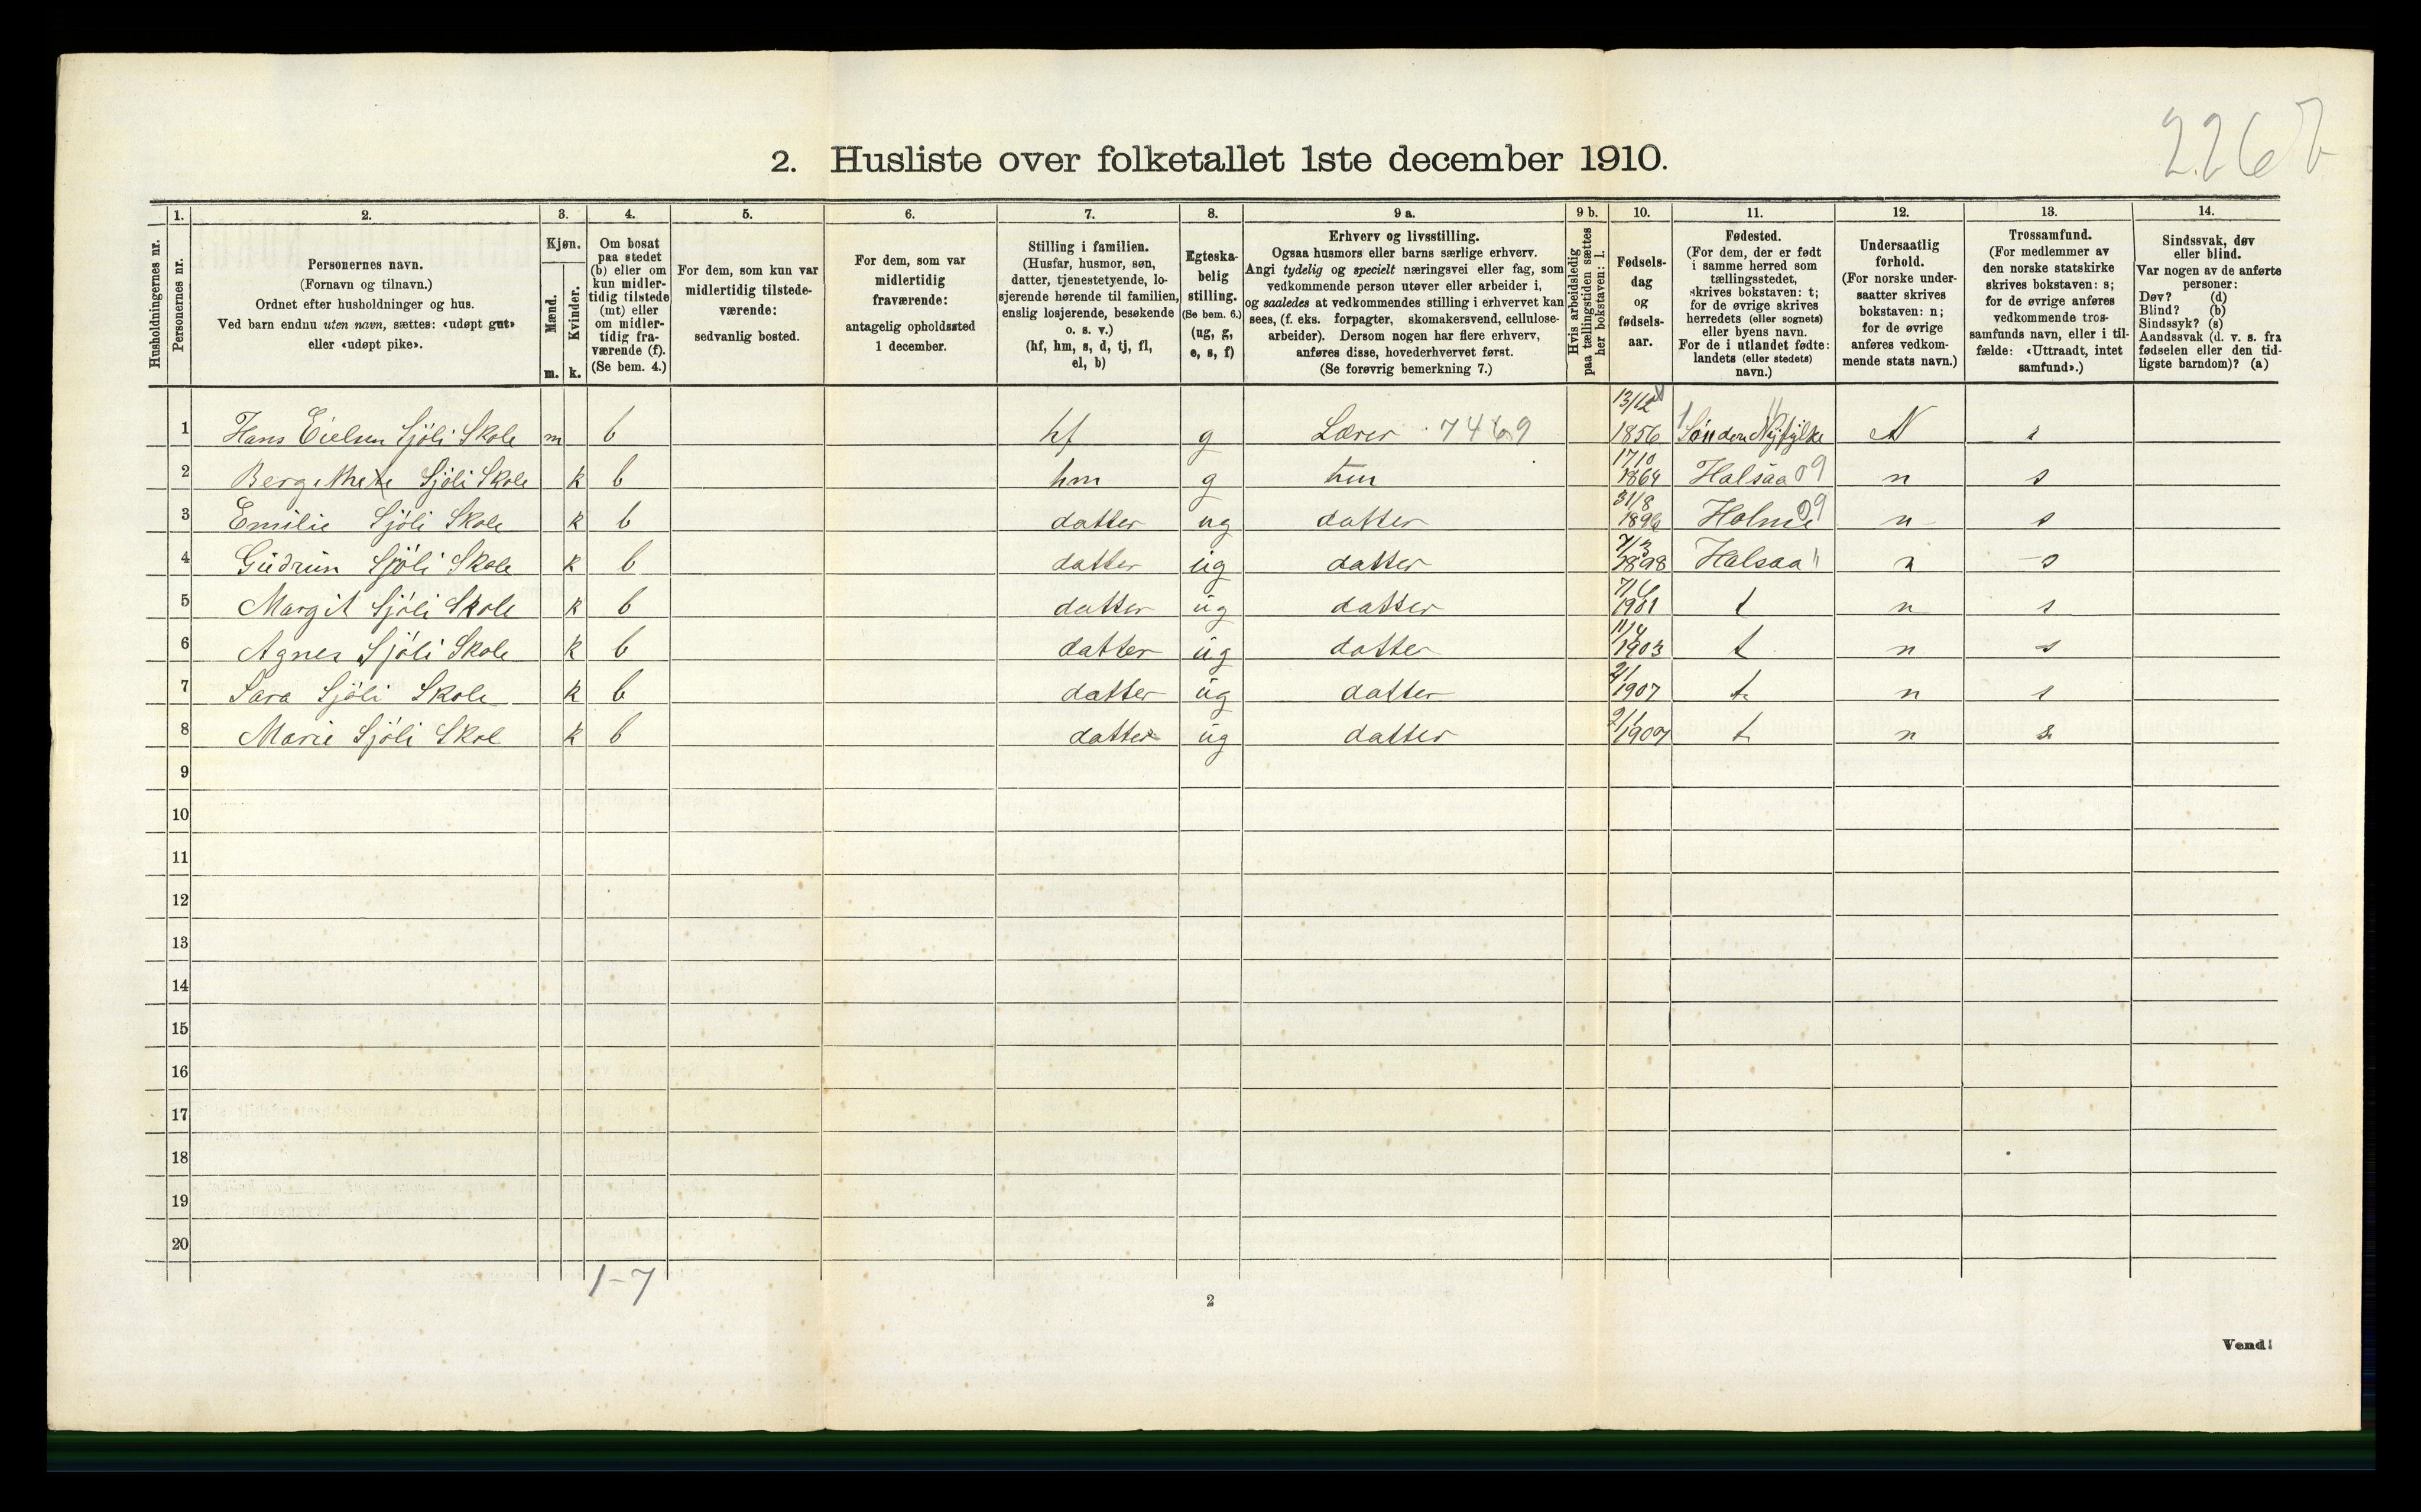 2267
2. Husliste over folketallet 1ste december 1910.
Husholdningernes nr.
1. Personernes nr.
2. Personernes navn.
(Fornavn og tilnavn.)
Ordnet efter husholdninger og hus.
Ved barn endnu uten navn, sættes: «udøpt gut»
eller «udøpt pike».
3. Kjøn.
Mænd. m.
Kvinder. k.
4. Om bosat
paa stedet
(b) eller om
kun midler-
tidig tilstede
(mt) eller
om midler-
tidig fra-
værende (f).
(Se bem. 4.)
5. For dem, som kun var
midlertidig tilstede-
værende:
sedvanlig bosted.
6. For dem, som var
midlertidig
fraværende:
antagelig opholdssted
1 december.
7. Stilling i familien.
(Husfar, husmor, søn,
datter, tjenestetyende, lo-
sjerende hørende til familien,
enslig losjerende, besøkende
o. s. v.)
(hf, hm, s, d, tj, fl,
el, b)
8. Egteska-
belig
stilling.
(Se bem. 6.)
(ug, g,
e, s, f)
9 a. Erhverv og livsstilling.
Ogsaa husmors eller barns særlige erhverv.
Angi tydelig og specielt næringsvei eller fag, som
vedkommende person utøver eller arbeider i,
og saaledes at vedkommendes stilling i erhvervet kan
sees, (f. eks. forpagter, skomakersvend, cellulose-
arbeider). Dersom nogen har flere erhverv,
anføres disse, hovederhvervet først.
(Se forøvrig bemerkning 7.)
9 b. Hvis arbeidsledig
paa tællingstiden sættes
her bokstaven: l.
10. Fødsels-
dag
og
fødsels-
aar.
11. Fødested.
(For dem, der er født
i samme herred som
tællingsstedet,
skrives bokstaven: t;
for de øvrige skrives
herredets (eller sognets)
eller byens navn.
For de i utlandet fødte:
landets (eller stedets)
navn.)
12. Undersaatlig
forhold.
(For norske under-
saatter skrives
bokstaven: n;
for de øvrige
anføres vedkom-
mende stats navn.)
13. Trossamfund.
(For medlemmer av
den norske statskirke
skrives bokstaven: s;
for de øvrige anføres
vedkommende tros-
samfunds navn, eller i til-
fælde: «Uttraadt, intet
samfund».)
14. Sindssvak, døv
eller blind.
Var nogen av de anførte
personer:
Døv? (d)
Blind? (b)
Sindssyk? (s)
Aandssvak (d. v. s. fra
fødselen eller den tid-
ligste barndom)? (a)
1 Hans Eielsen Sjöli Skole m b hf g Lærer 7469 13/12 1856 N s
2 Sjöli Skole k b hm g hm 17/10 1864 Halsaa 09 n s
3 Emilie Sjöli Skole k b datter ug datter 31/8 1896 Holme 09 n s
4 Gudrun Sjöli Skole k b datter ug datter 7/3 1898 Halsaa n s
5 Margit Sjöli Skole k b datter ug datter 7/6 1901 t n s
6 Agnes Sjöli Skole k b datter ug datter 11/4 1903 t n s
7 Sara Sjöli Skole k b datter ug datter 2/1 1907 t n s
8 Marie Sjöli Skol k b datter ug datter 2/1 1907 t n s
9
10
11
12
13
14
15
16
17
18
19
20
1-7
2
Vend!